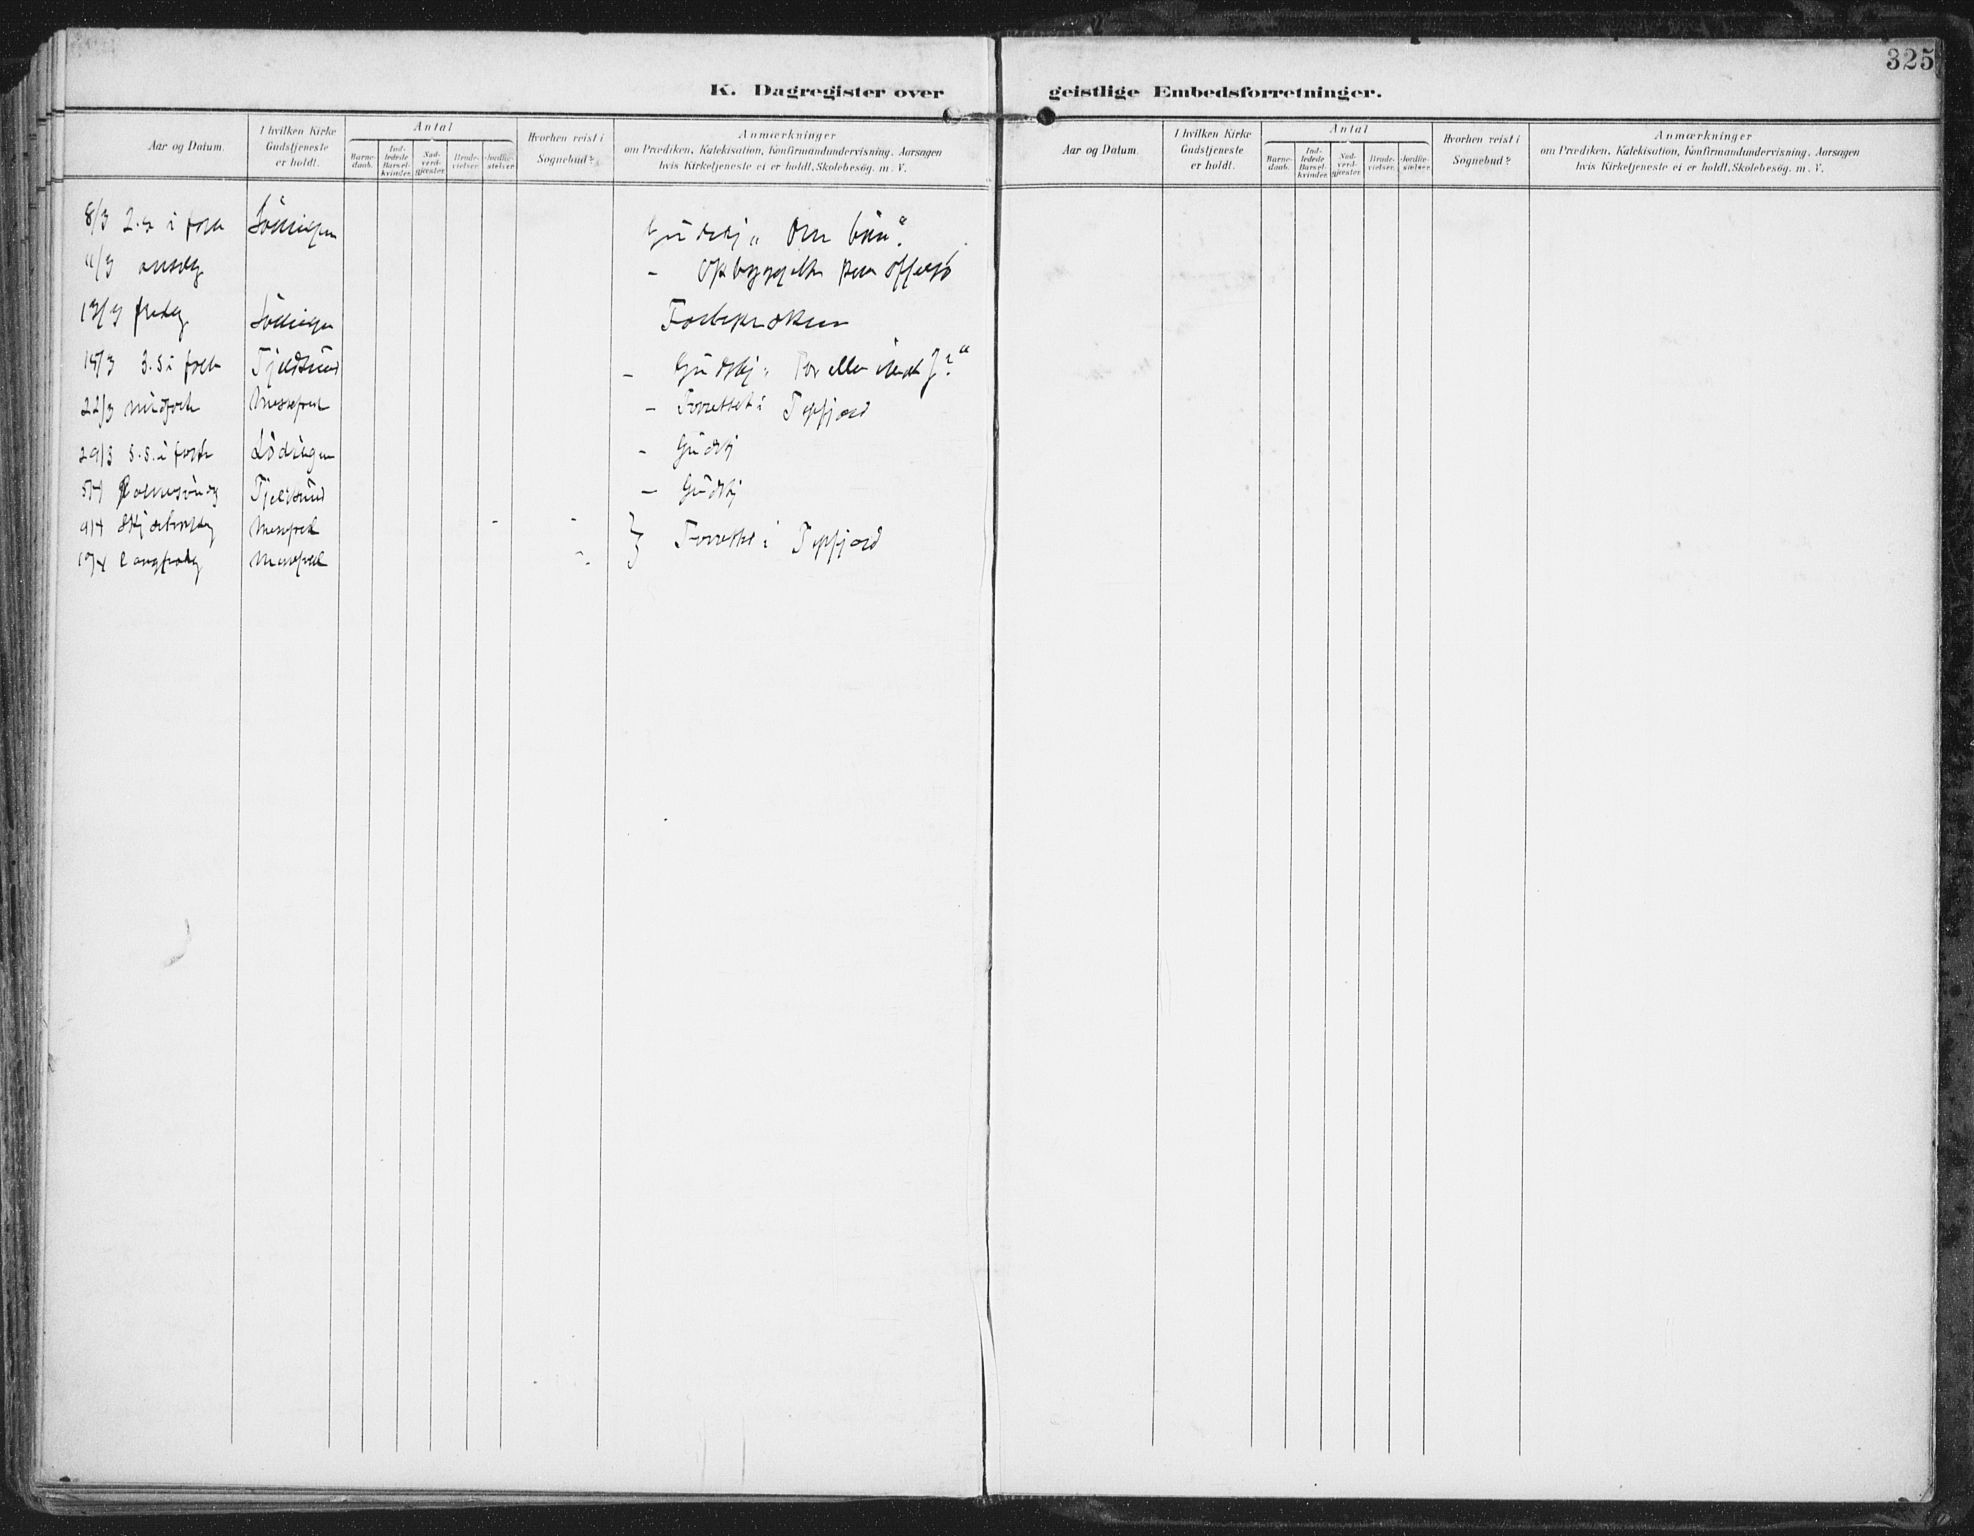 325
K. Dagregister over geistlige Embedsforretninger.
Aar og Datum.
I hvilken Kirke Gudstjeneste er holdt.
Antal
Barnedaab.
Indledede Barselkvinder.
Nadverdgjæster.
Brudevielser.
Jordfæstelser.
Hvorhen reist i Sognebud?
Anmærkninger
om Prædiken, Katekisation, Konfirmandundervisning, Aarsagen
hvis Kirketjeneste ei er holdt, Skolebesøg. m. V.
Aar og Datum.
I hvilken Kirke Gudstjeneste er holdt.
Antal
Barnedaab.
Indledede Barselkvinder.
Nadverdgjæster.
Brudevielser.
Jordfæstelser.
Hvorhen reist i Sognebud?
Anmærkninger
om Prædiken, Katekisation, Konfirmandundervisning, Aarsagen
hvis Kirketjeneste ei er holdt, Skolebesøg. m. V.
8/3 2. s i faste Lödingen Gudstj „Om bön“.
11/3 onsdg -
13/3 fredg Lödingen
15/3 3. s i faste Tjeldsund - Gudstj.
22/3 midfaste Messefald - Forrettet i Tysfjord
29/3 5. s. i faste Lödingen - Gudstj
5/4 Palmesöndg Tjeldsund - Gudstj
9/4 Skjærtorsdg Messefald - - } Forrettet i Tysfjord
10/4 Langfredg Messefald -